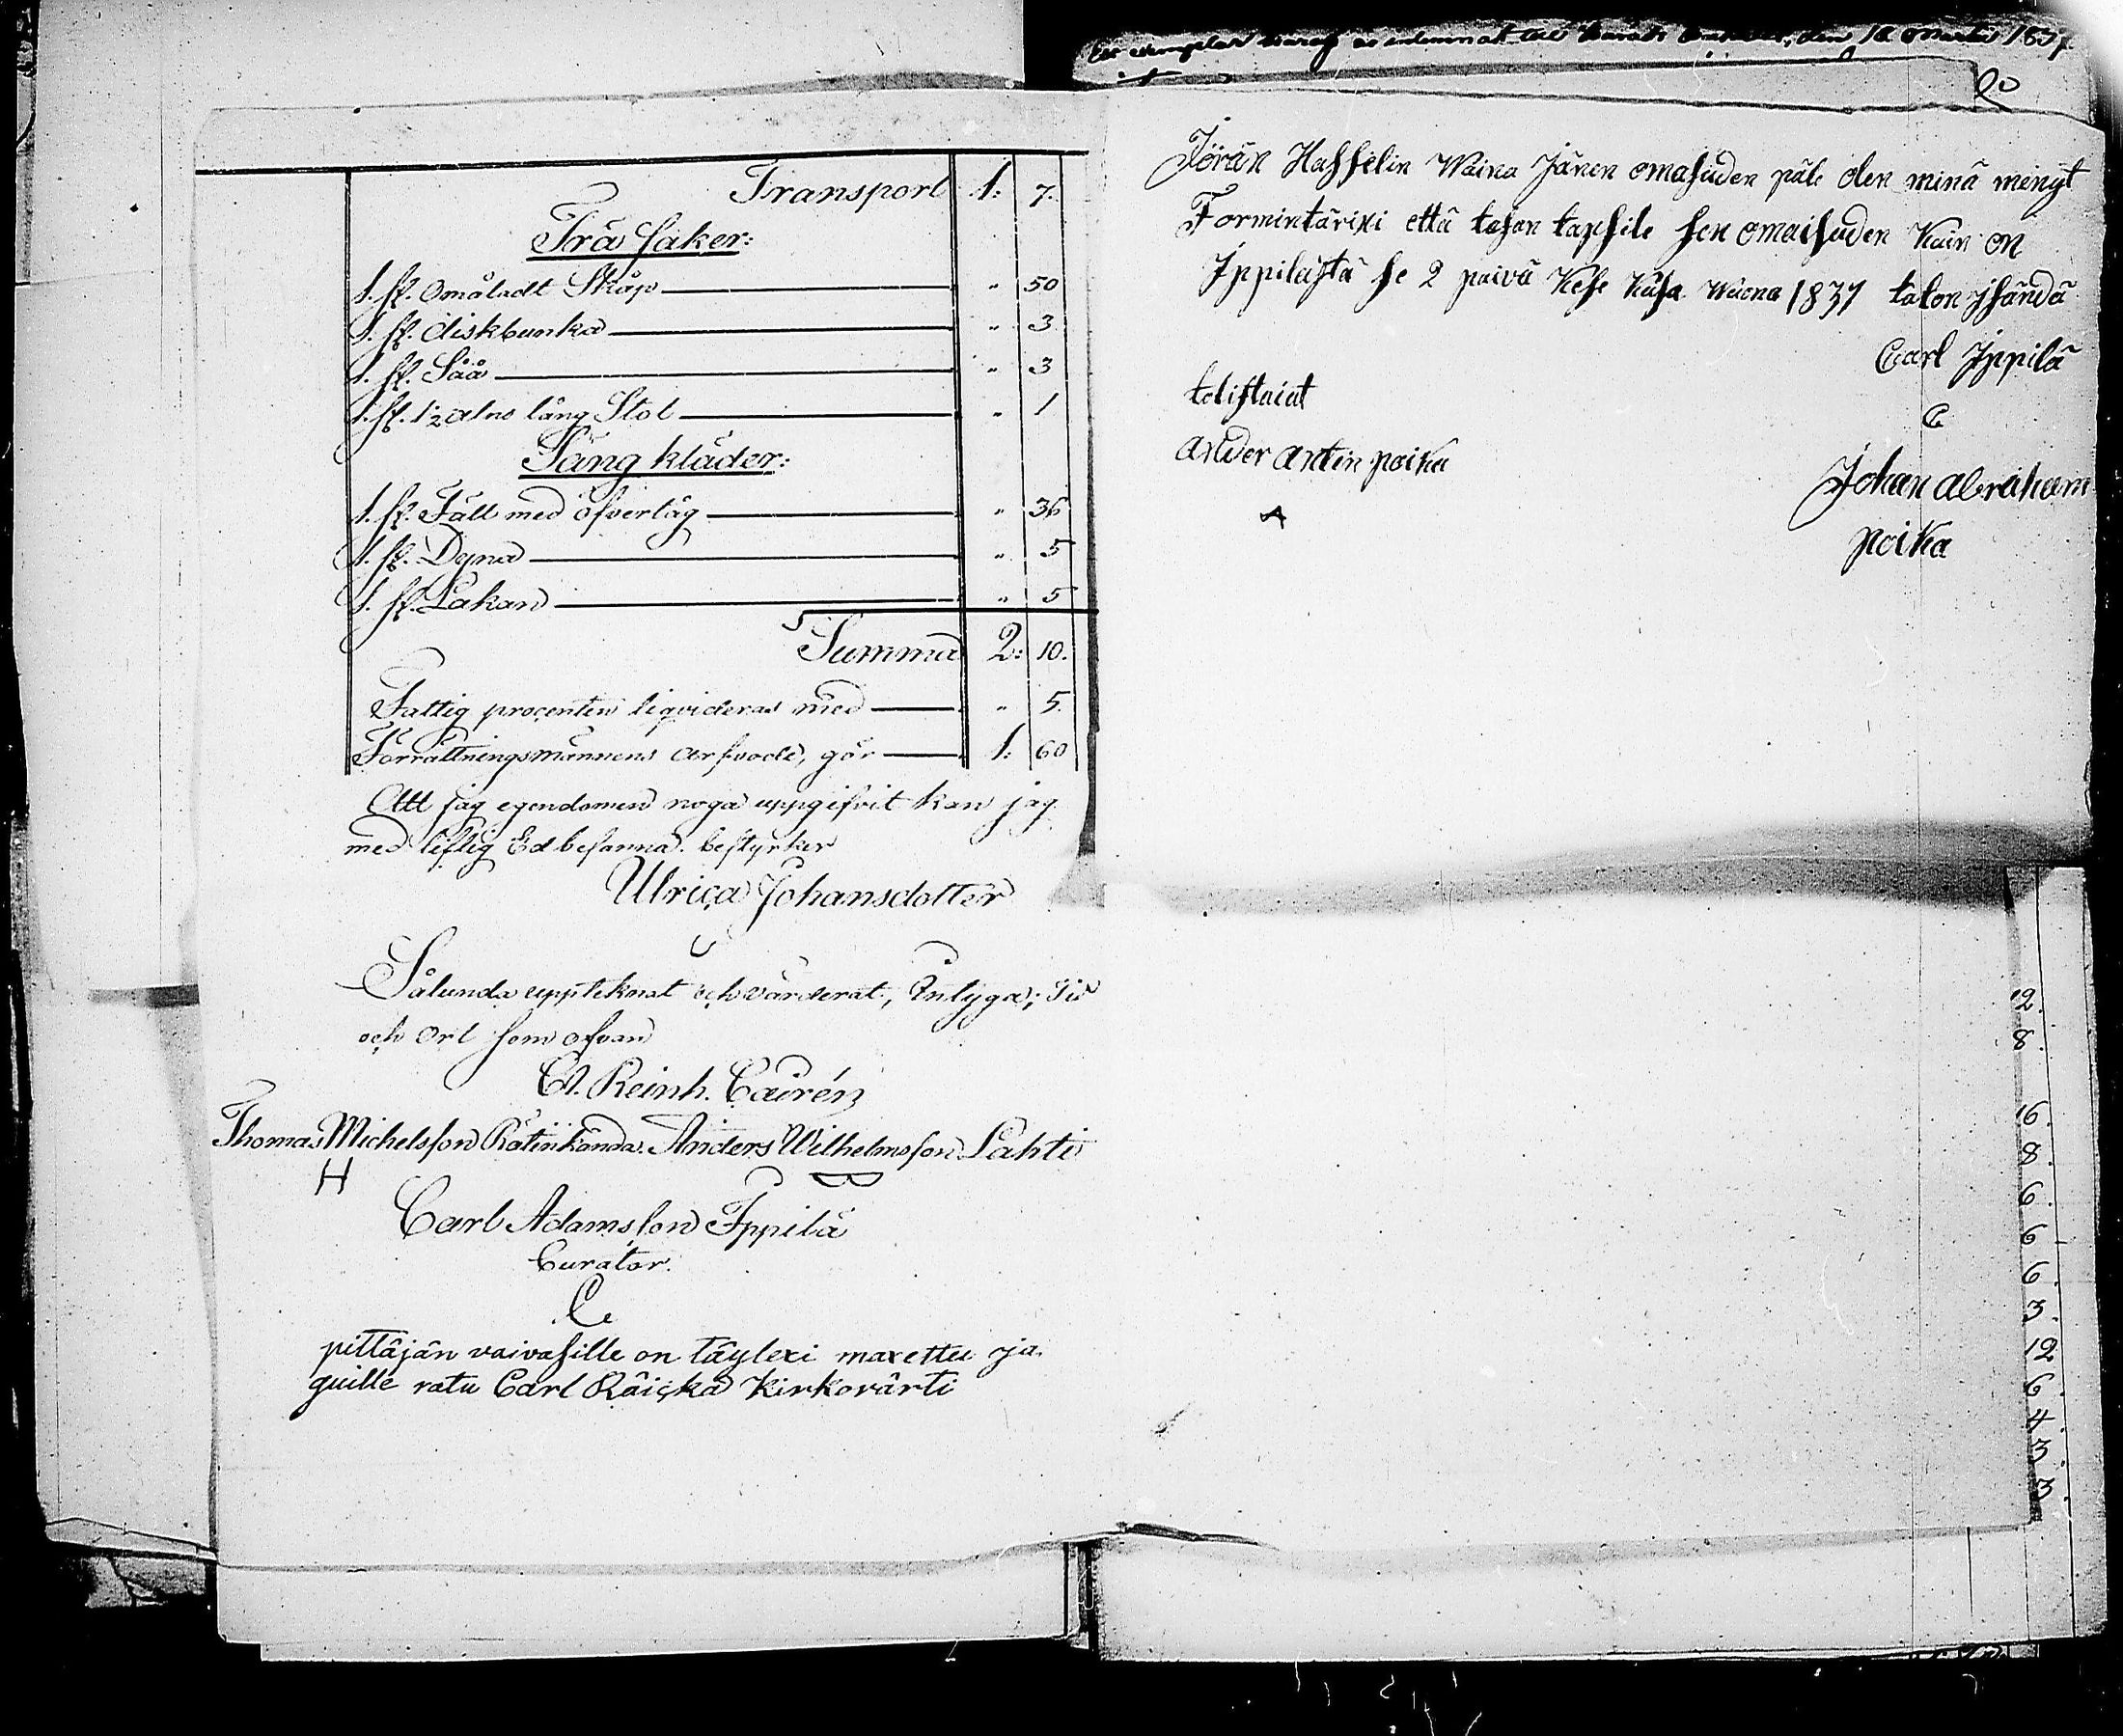 Transport 1: 7.
Trä saker:
1. st. Omåladt Skåp " 50
1. st. diskbunka " 3
1. st. Såå " 3
1. st. 1½ alns lång Stol " 1
Sängkläder:
1. st. Fäll med öfverlag " 36
1. st. Dyna " 5
1. st. Lakan " 5
Summa 2: 10.
Fattig procenten liqvideras med " 5.
Förrättningsmännens arfvode, gör 1: 60
Att jag egendomen noga uppgifvit kan jag
med liflig Ed besanna. bestyrker
Ulrica Johansdotter
Sålunda uppteknat och värderat, Intyga; Tid
och Ort som ofvan
Reinh. Cairén
Thomas Michelsson Anders Wilhelmsson Lahti
H
Carl Adamsson Ippilä
Curator.
C
pittäjän vaivasille on täylexi maxettu ja
quitte ratu Carl Räicka Kirkovärti
den 18 1837
Jörän Hasselin Waina Jänen omasuden päle olen minä menyt
Formintärixi että tahon tapsile sen omaisuden Kuin on
Ippilästä se 2 päivä Kese Kusa Wuona 1837 talon isändä
Carl Ippilä
C
tolistaiat
ander antin poika
A
Johan abraham
poika
12.
8.
16.
8.
6.
6
6.
3.
12
6.
4.
3.
3.